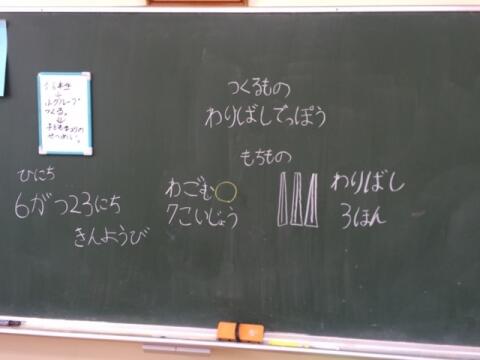 つくるもの
わりばしでっぽう
もちもの
ひにち
6がつ23にち
きんようび
わごむ
7こいじょう
わりばし
3ぼん
小グループ
つくる。